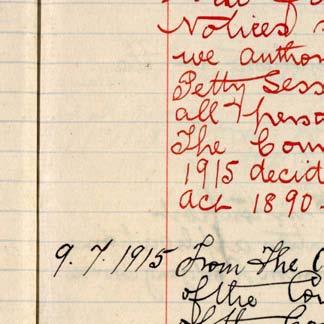 Notices
we author
Petty Sess
all & perso
The Com
1915 decid
Act 1890.
9. 7. 1915 From The C
of the Co